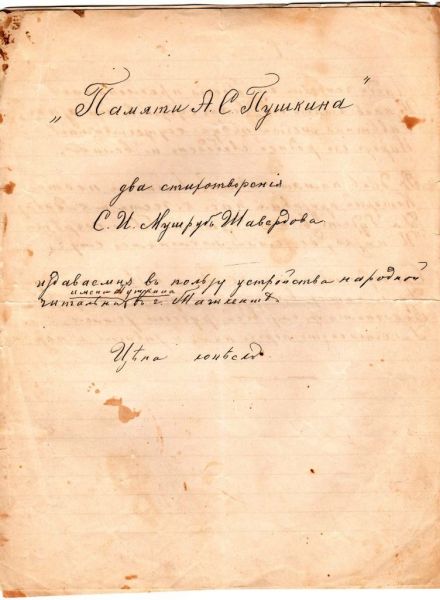 „Памяти А. С. Пушкина"
два стихотворенія
С. И. Мушрубъ Шавердова
издаваемыя въ пользу устройства народной
имени Пушкина
читальни въ г. Ташкентѣ
Цѣна